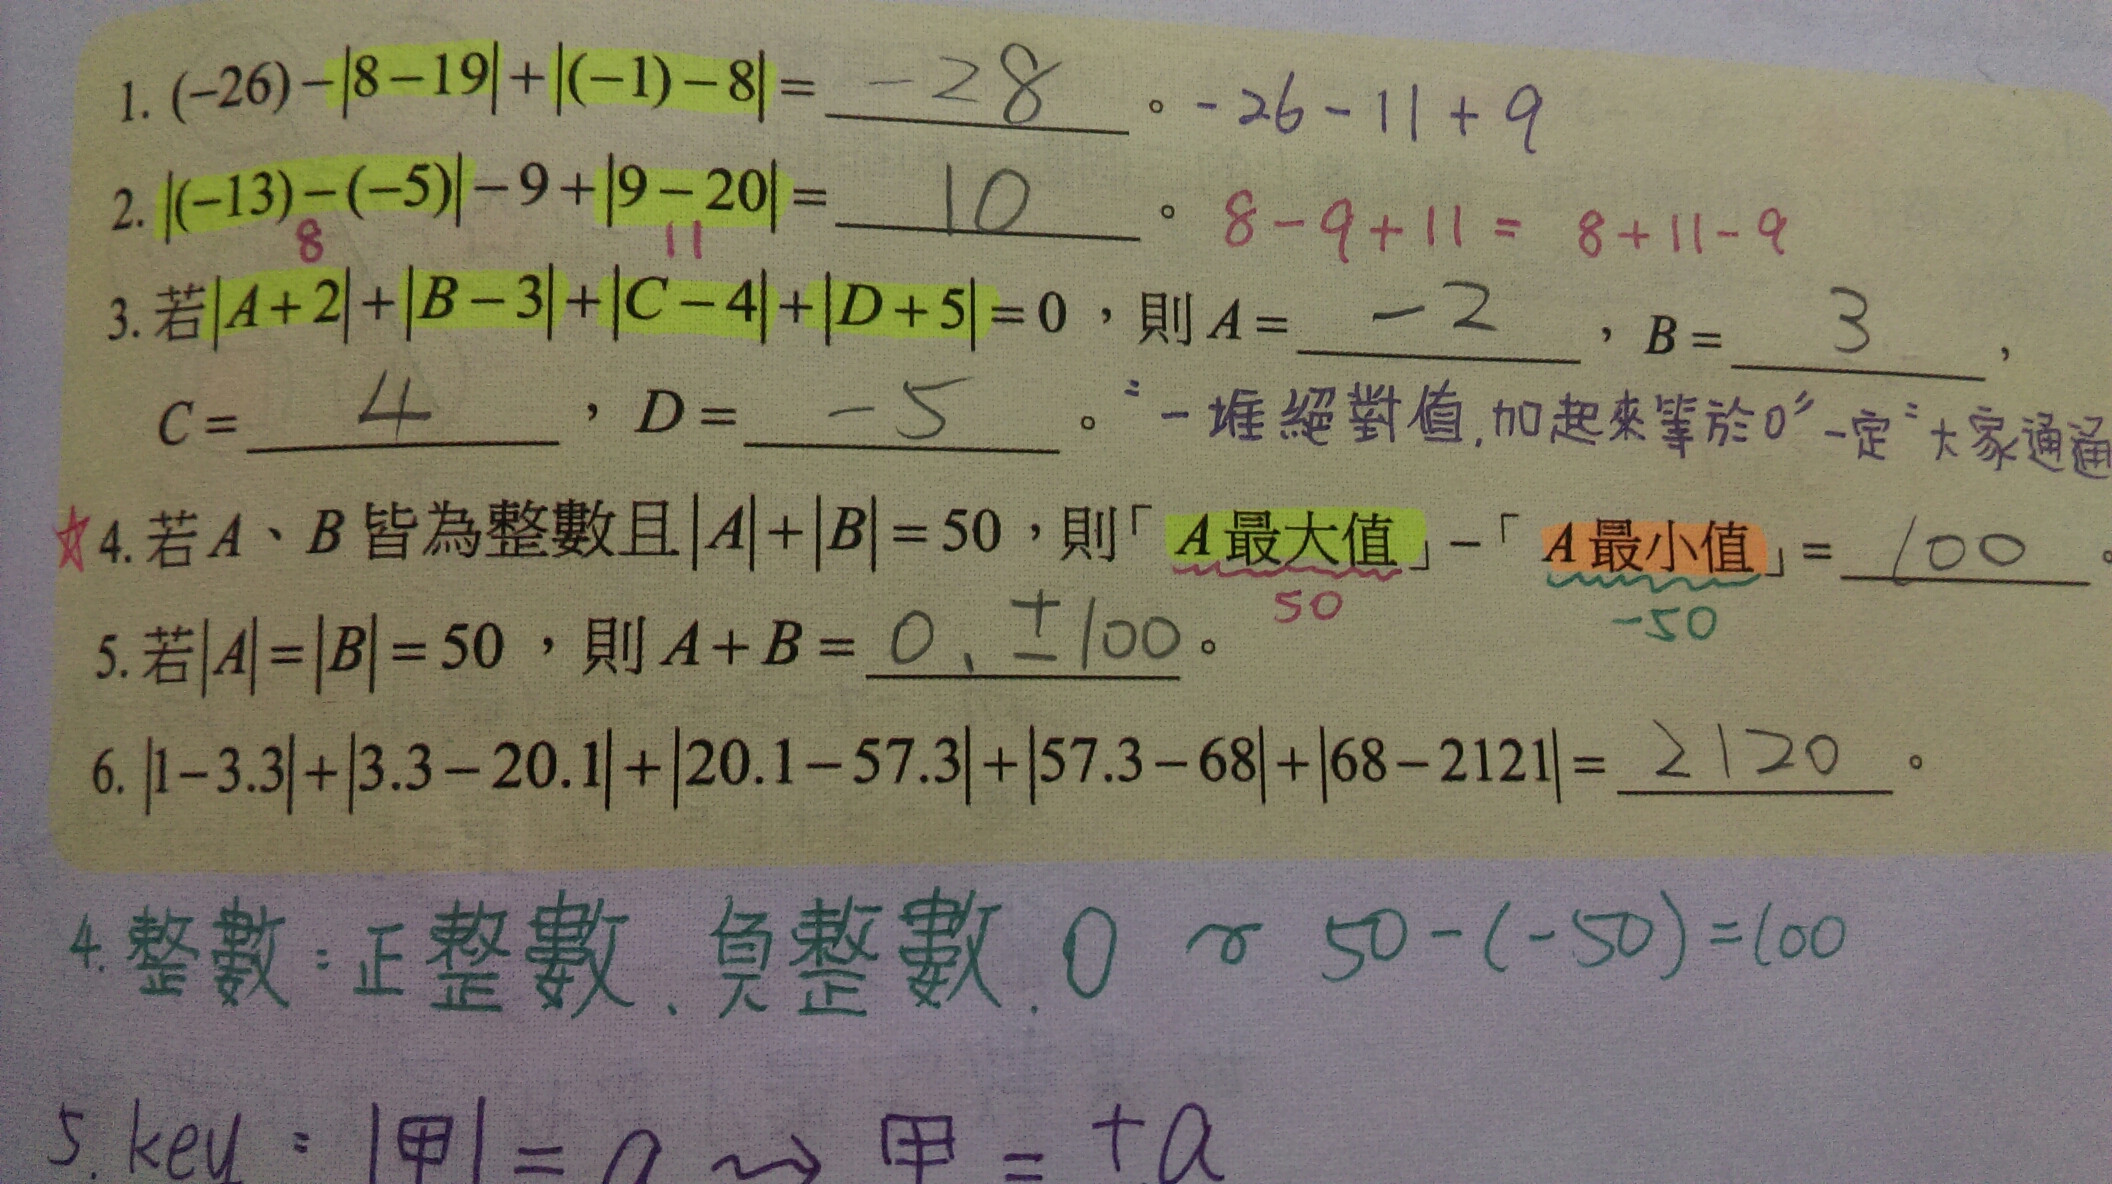 1. (−26)−|8−19|+|(−1)−8|= −28 。 -26-11+9
2. |(−13)−(−5)|−9+|9−20|= 10 。 8-9+11= 8+11-9
8 11
3. 若|A+2|+|B−3|+|C−4|+|D+5|=0,則A= −2 ,B= 3 ,
C= 4 ,D= −5 。"一堆絕對值,加起來等於0"一定"大家通通
☆4. 若A、B皆為整數且|A|+|B|=50,則「A最大值」−「A最小值」= 100 。
50 -50
5. 若|A|=|B|=50,則A+B= 0、±100 。
6. |1−3.3|+|3.3−20.1|+|20.1−57.3|+|57.3−68|+|68−2121|= 2120 。
4. 整數:正整數、負整數、0 ~ 50-(-50)=100
5. key:|甲|=a ⇝ 甲=±a